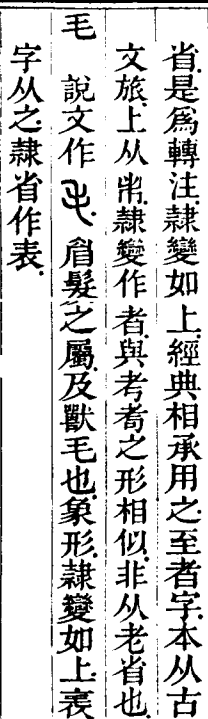 省是爲轉注隸變如上經典相承用之至者字本从古
文旅上从𣥐隸變作者與考耇之形相似非从老省也
毛　說文作眉髮之屬及獸毛也象形隸變如上表
字从之隸省作表